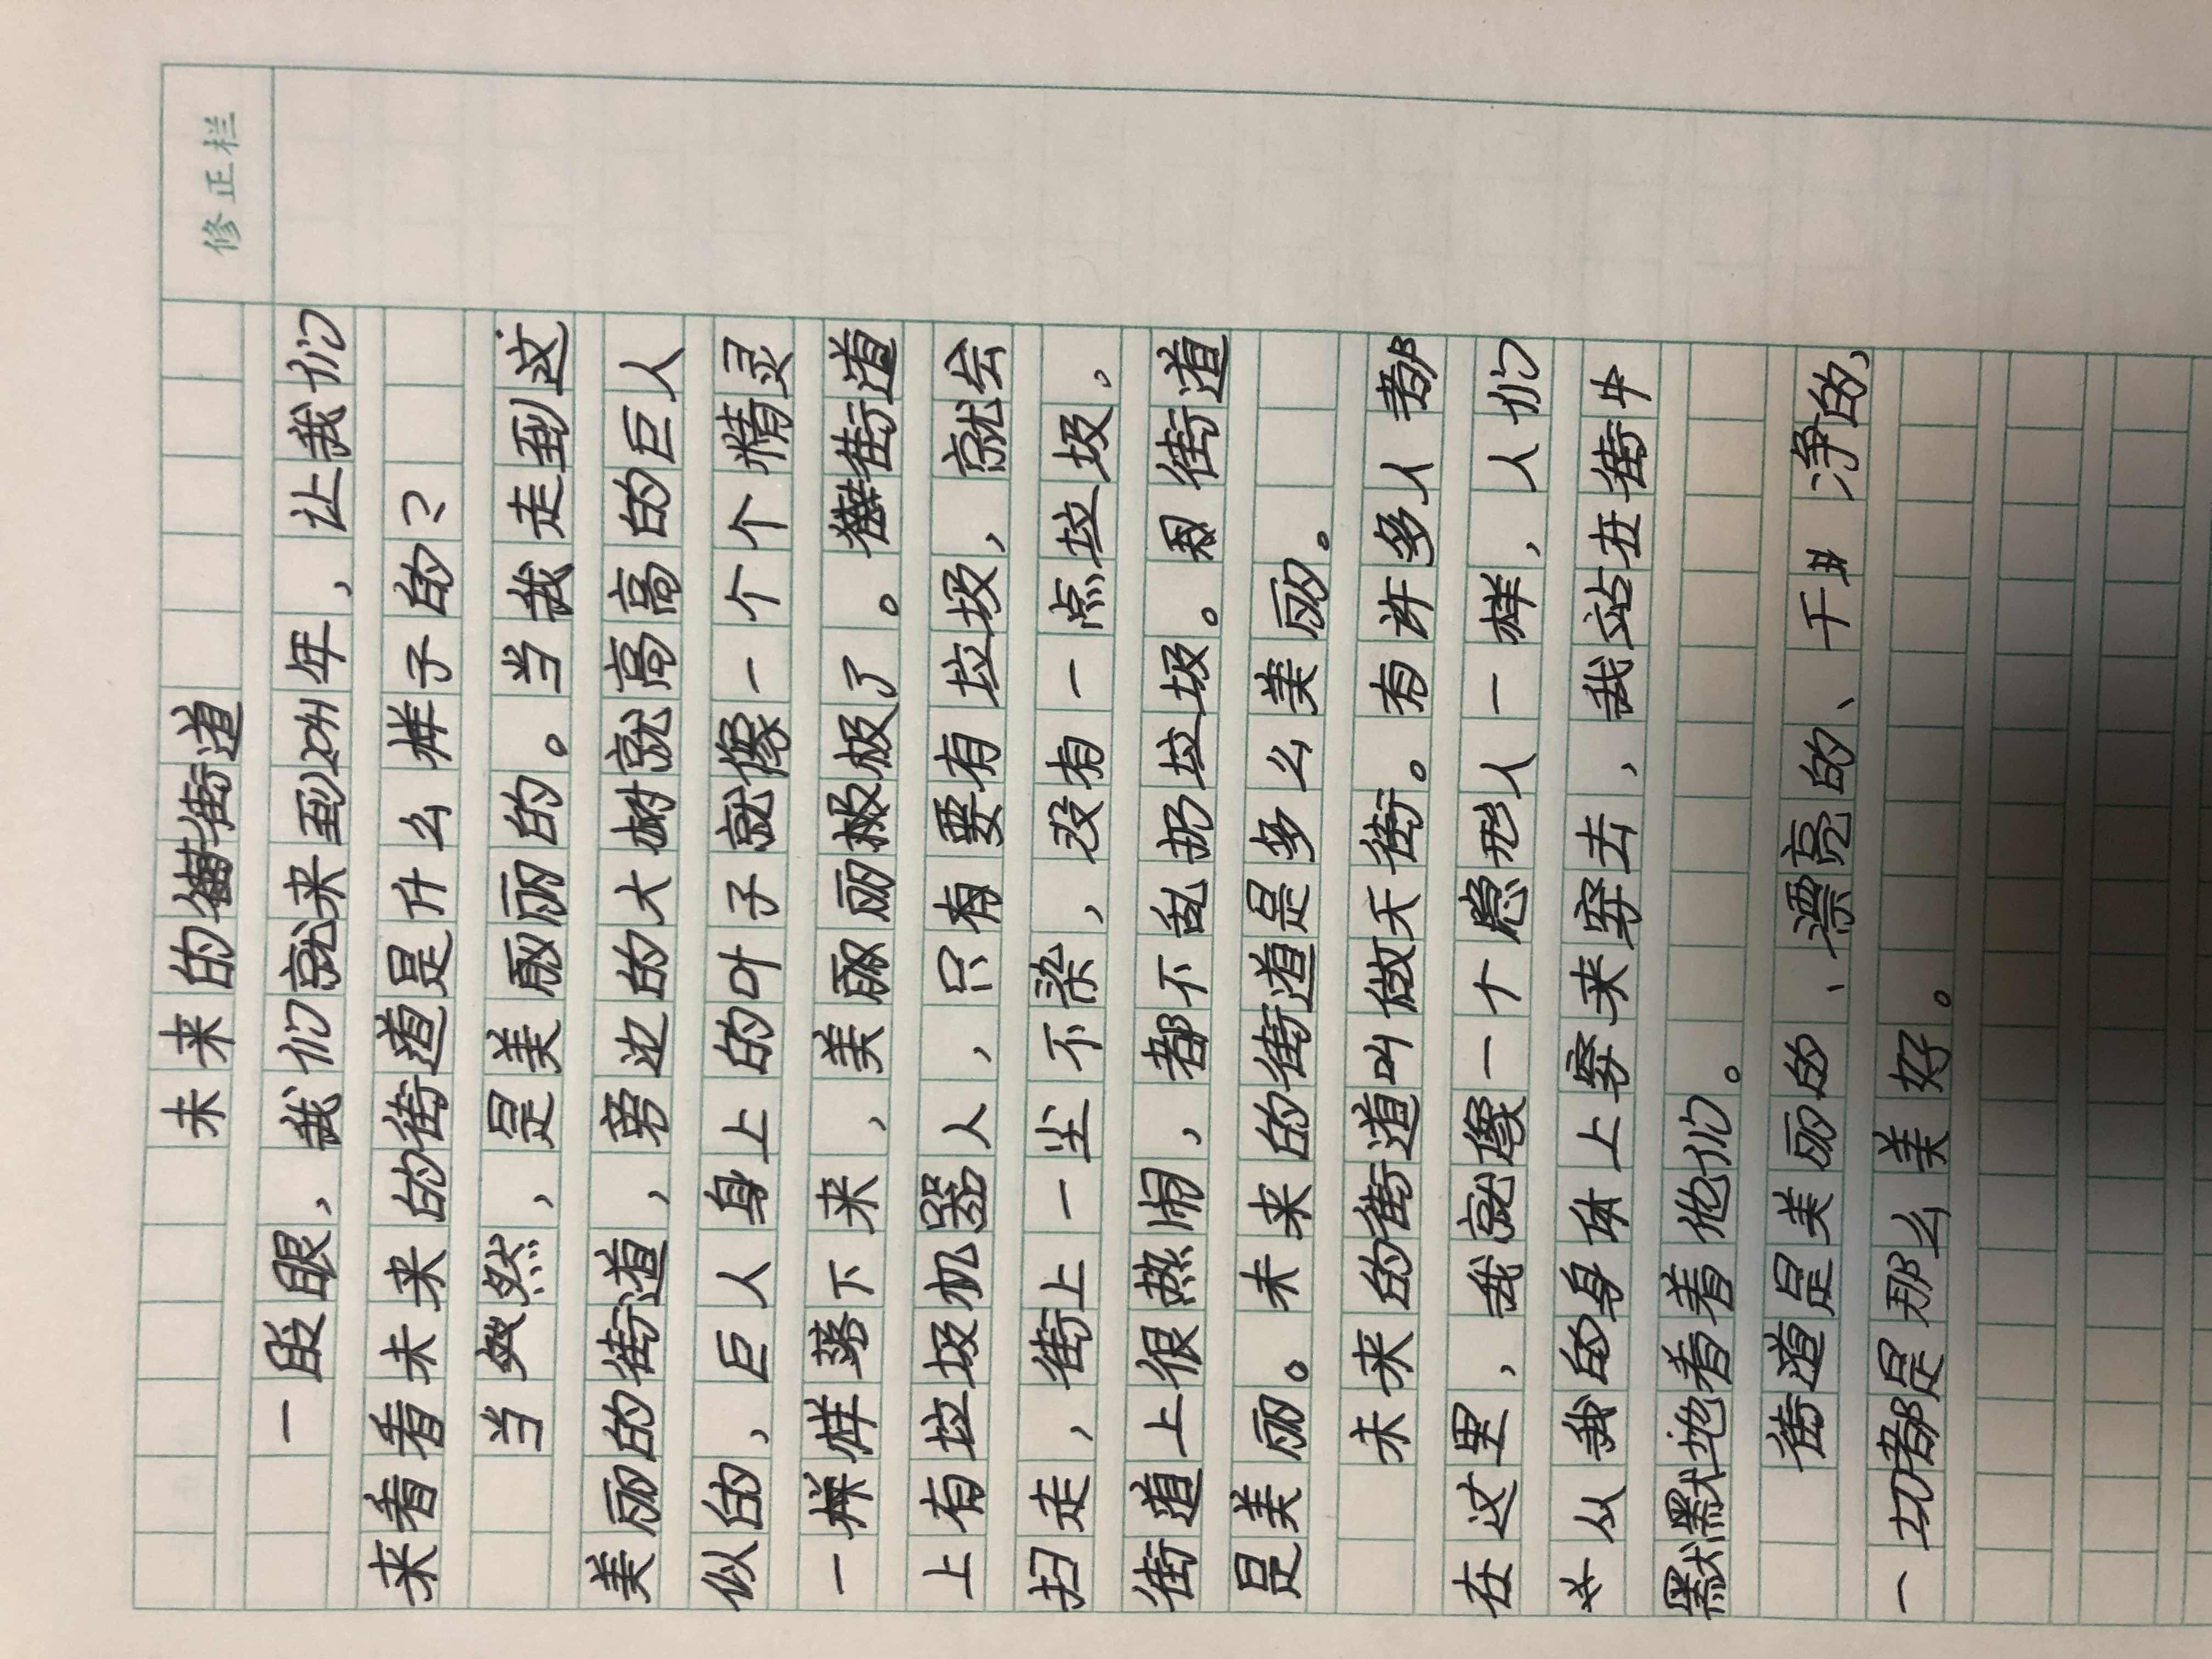 修正栏
未来的街道
一眨眼，我们就来到年，让我们
来看看未来的街道是什么样子的？
当然，是美丽的。当我走到这
美丽的街道，旁边的大树就高高的巨人
似的，巨人身上的叶子就像一个个精灵
一样落下来，美丽极了。街道
上有垃圾机器人，只要有垃圾，就会
扫走，街上一尘不染，没有一点垃圾，
街道上很热闹，都不乱扔垃圾。街道
是美丽。未来的街道是多么美丽。
未来的街道叫做天街。有许多人都
在这里，我就像一个隐形人一样，人们
从我的身体上穿来穿去，我站在街中
默默地看着他们。
街道是美丽的、漂亮的、干净的，
一切都是那么美好。